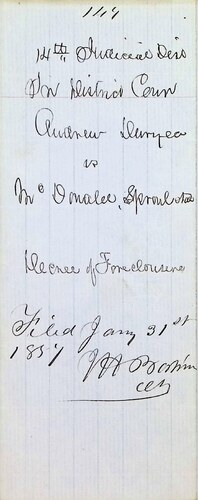 14th Judicial Dis
In District Cour
Andrew Duryea
vs
McDonald, Sproul
Decree of Foreclosure
Filed Jany 31st
1857